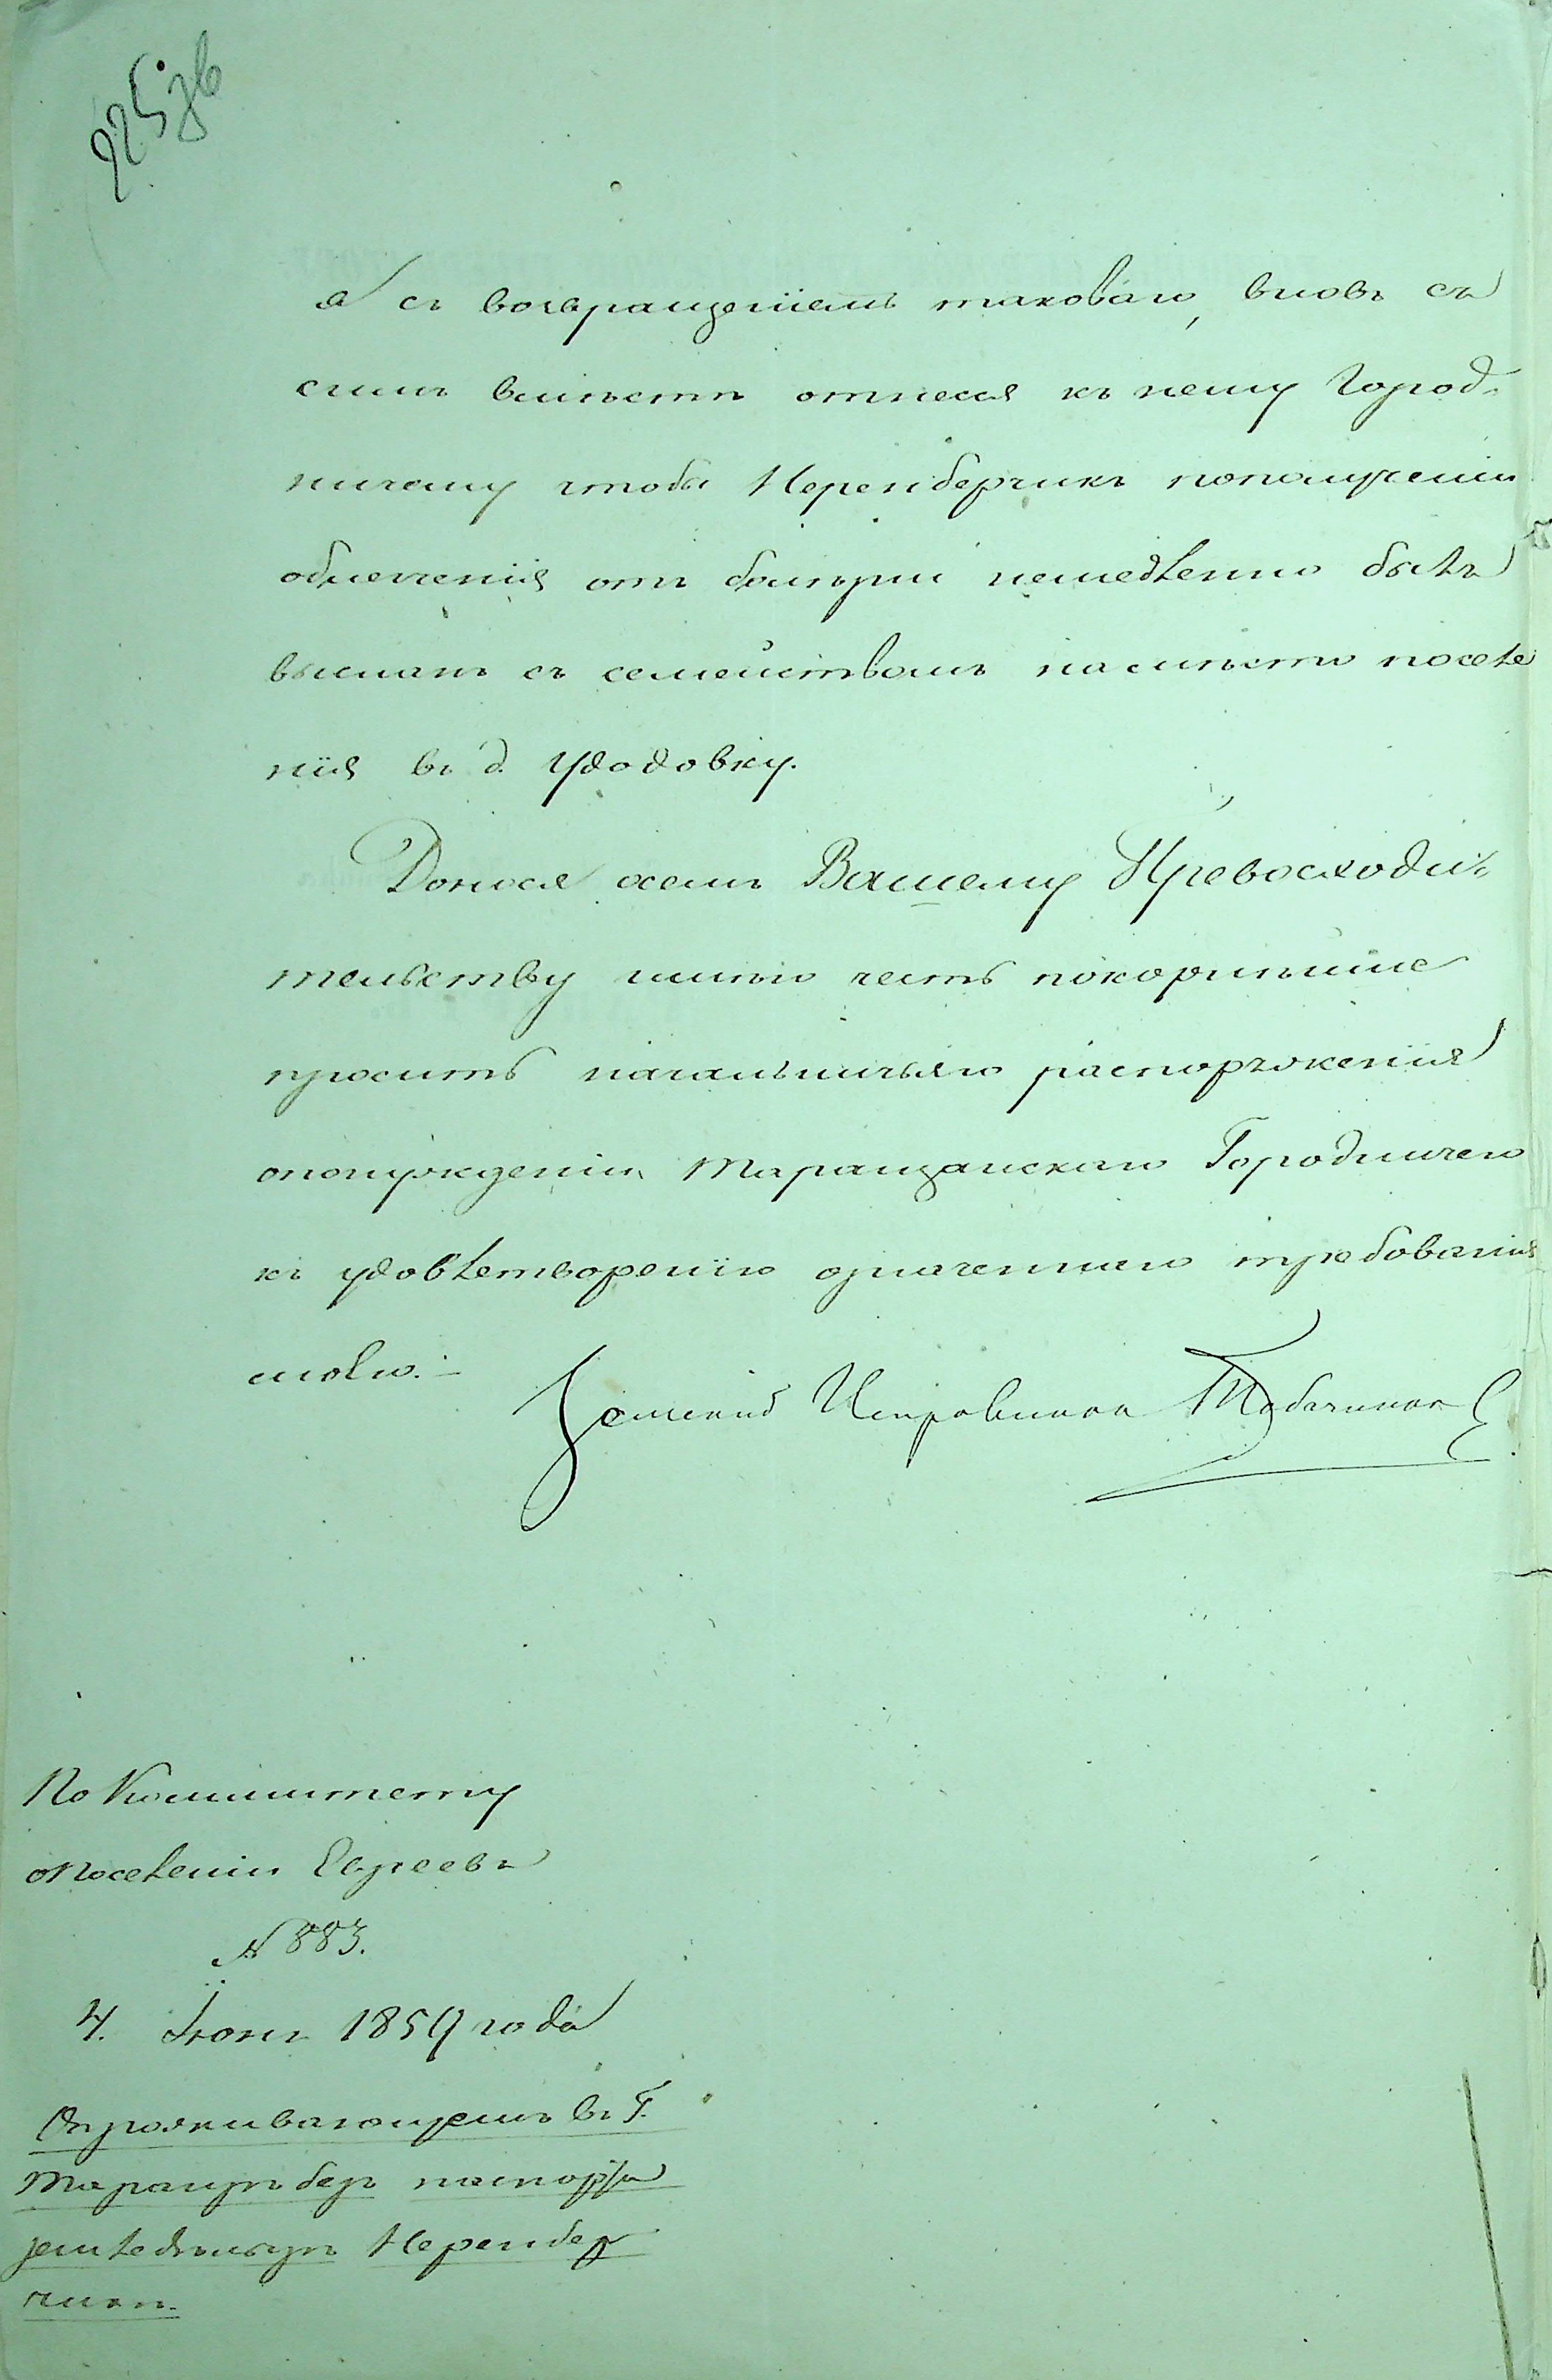 225 зв
я съ возвращеніемъ таковаго, вновь съ
симъ вмѣстѣ отнесся къ нему Город-
ничему чтобы Перенберчикъ пополученіи
облегченія отъ болѣзни немедленно былъ
высланъ съ семействомъ на мѣсто поселе
нія въ д. Удодовку.
Донося осемъ Вашему Превосходи-
тельству имѣю честь покорнѣйше
просить начальничьяго распоряженія
опонужденіи Таращанскаго Городничего
къ удовлетворенію означеннаго требованія
моего.
Земский Исправникъ
По Коммитету
опоселеніи Евреевъ
№ 883.
4. Іюня 1859 года
Опроживающемъ въ Г.
Таращѣ безъ паспорта
земледѣльцѣ Перенбер
чикѣ.